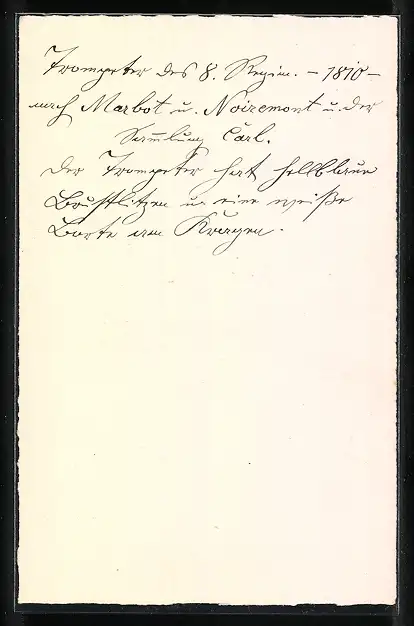 Trompeter des 8. Regim. – 1810 –
nach Marbot u. Noiremont u. der
Sammlung Carl.
Der Trompeter hat hellblaue
Brustlitzen u. eine weiße
Borte am Kragen.